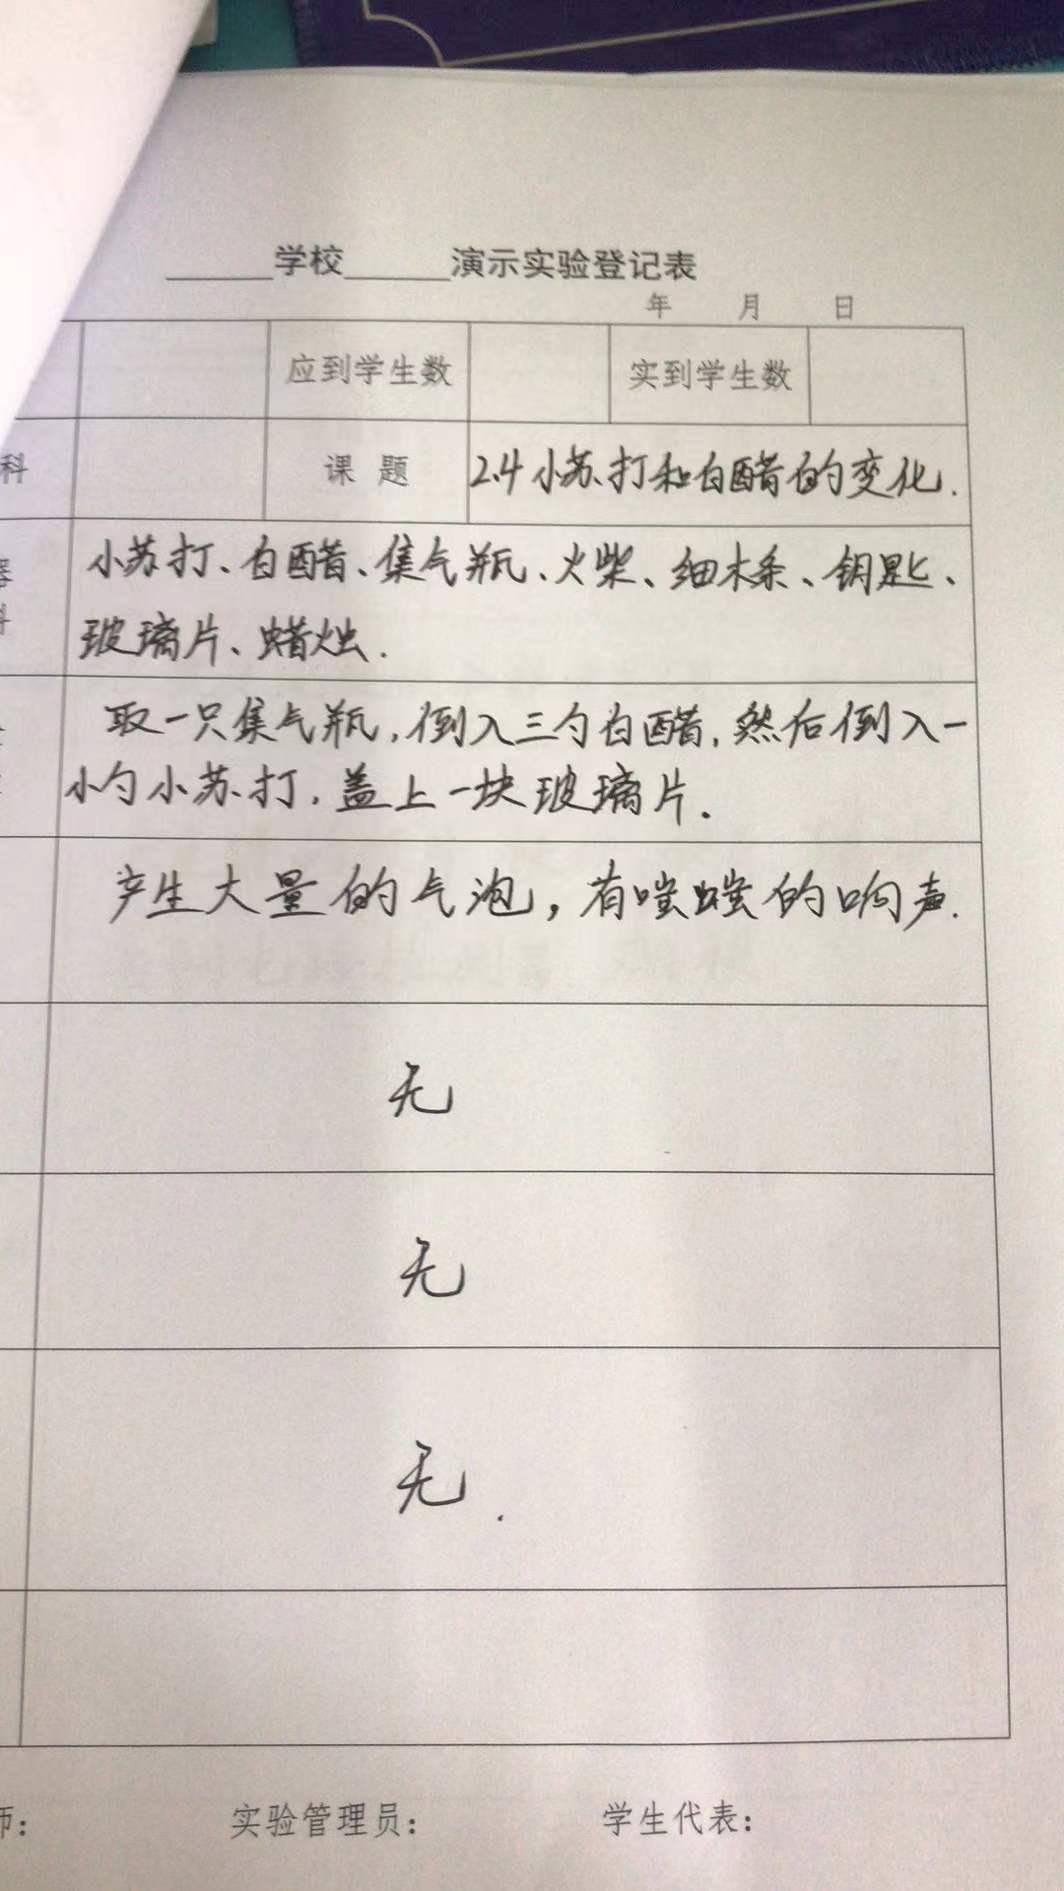 学校 演示实验登记表
年 月 日
应到学生数 实到学生数
科 课 题 2.4 小苏打和白醋的变化.
小苏打、白醋、集气瓶、火柴、细木条、钥匙、
玻璃片、蜡烛.
取一只集气瓶,倒入三勺白醋,然后倒入一
小勺小苏打,盖上一块玻璃片.
产生大量的气泡,有嗞嗞的响声.
无
无
无.
师: 实验管理员: 学生代表: